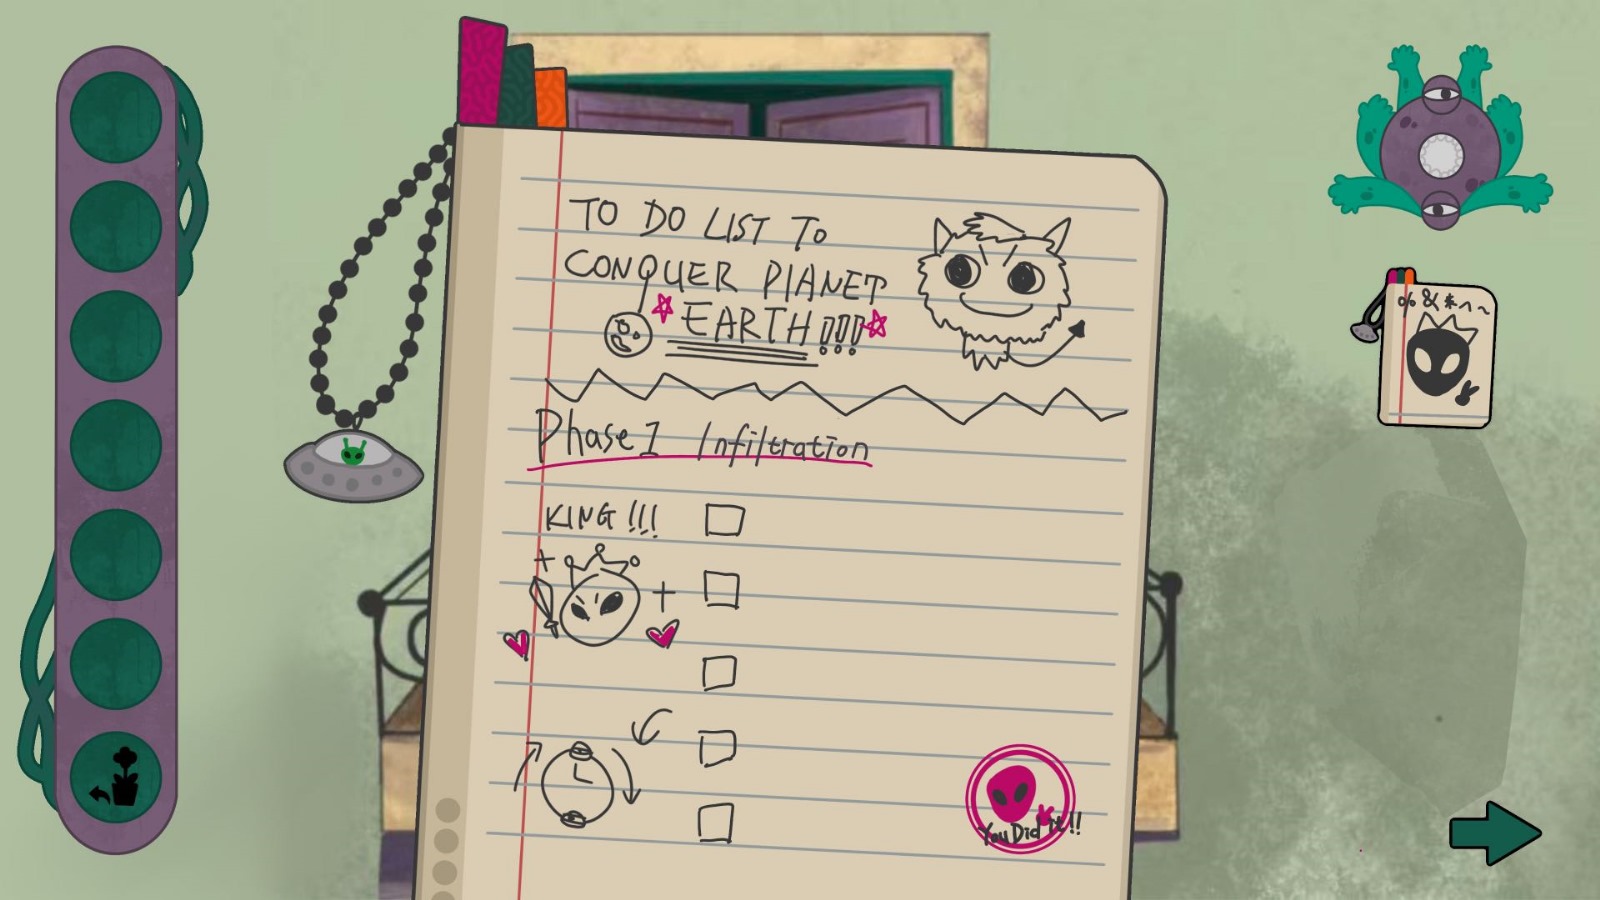 TO DO LIST TO
CONQUER PLANET
EARTH!!!
Phase 1 Infiltration
KING!!!
You Did it!!
% & * ^ ~